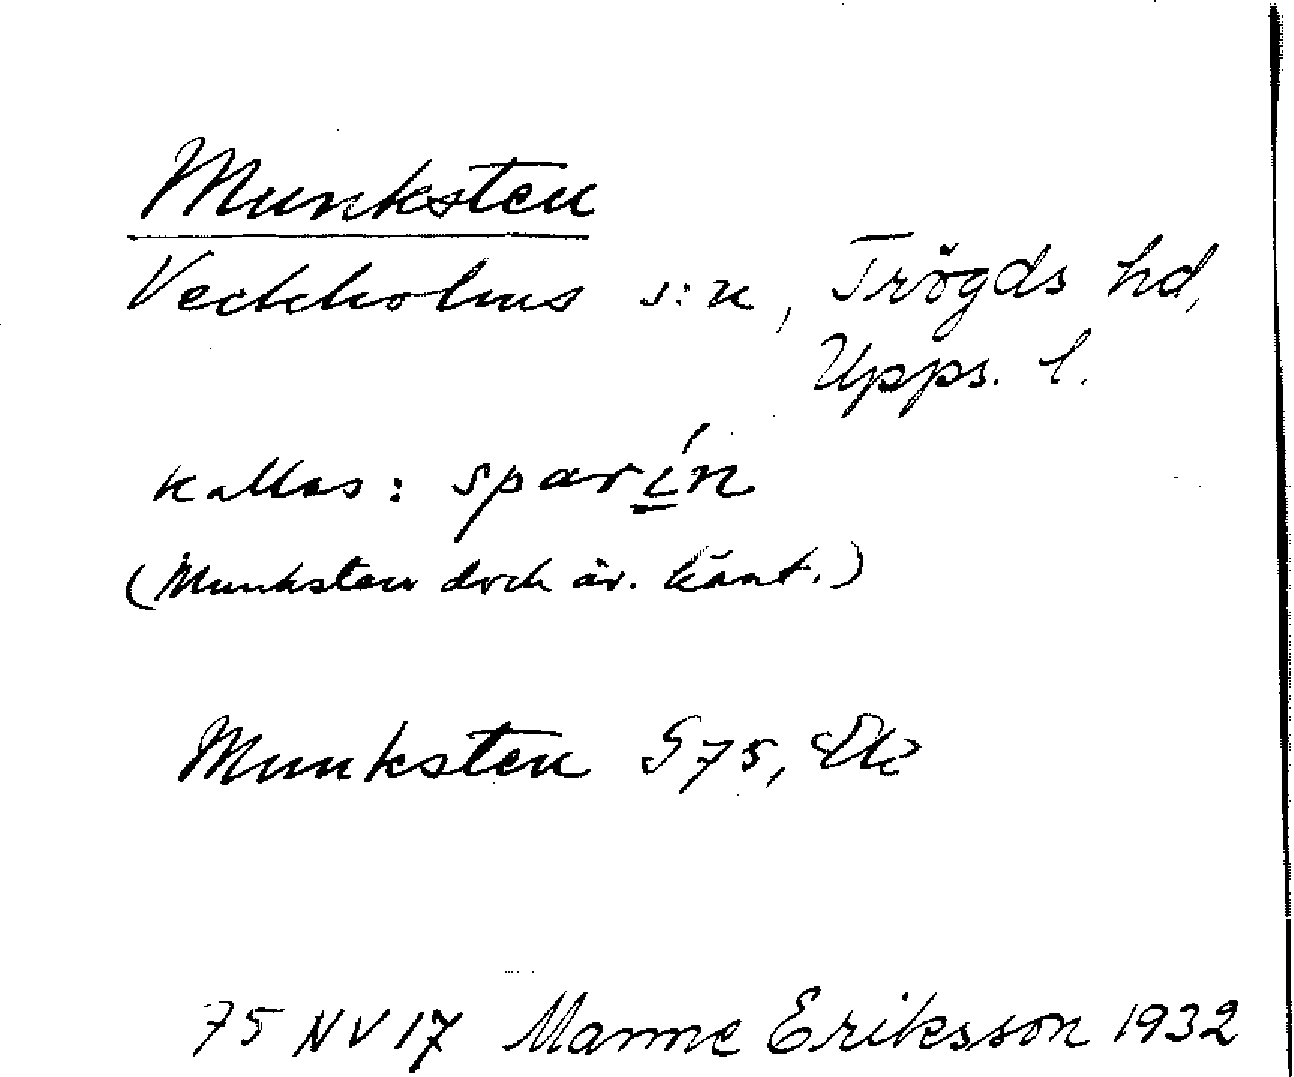 Munksten
Veckholms s:n, Trögds hd,
Upps. l.
kallas: sparín
(Munksten dock äv. känt.)
Munksten G75, Ek
75 NV 17 Manne Eriksson 1932